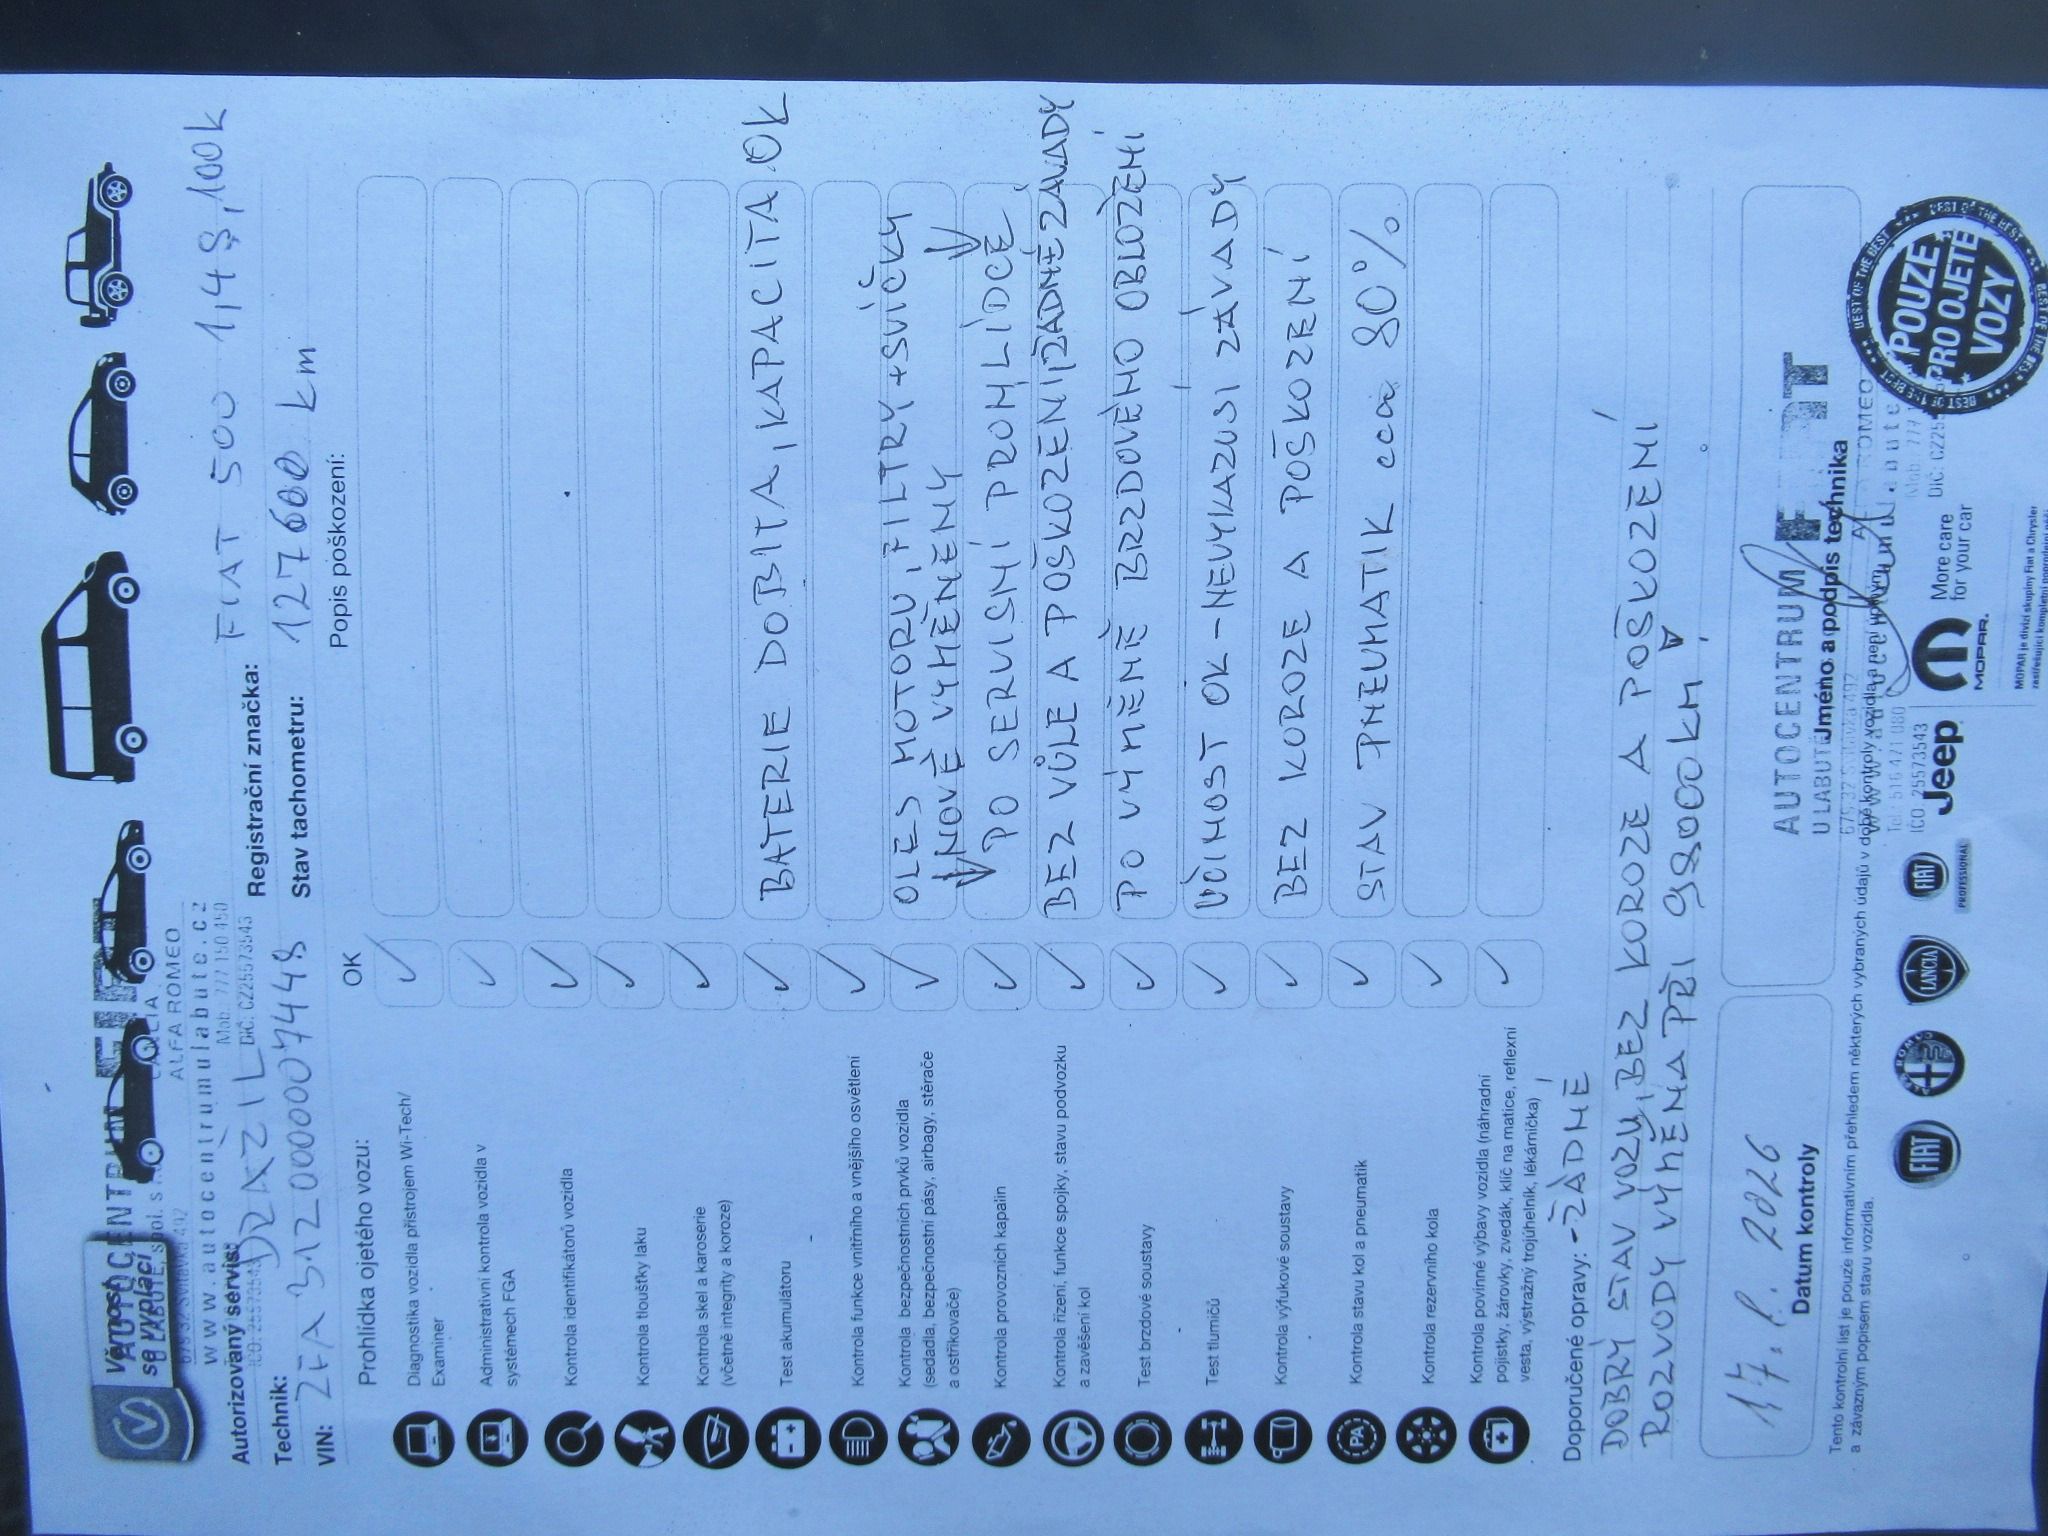 Věrnost
se vyplácí
AUTOCENTRUM
ALFA ROMEO
www.autocentrumulabute.cz
Mob. 777 150 450
DIČ: CZ25573543
Autorizovaný servis:
Registrační značka: FIAT 500 1,4i, 100k
Technik: DRAZIL
Stav tachometru: 127600 km
VIN: ZFA 312000007448
Prohlídka ojetého vozu:
OK
Popis poškození:
Diagnostika vozidla přístrojem Wi-Tech/
Examiner
Administrativní kontrola vozidla v
systémech FGA
Kontrola identifikátorů vozidla
Kontrola tloušťky laku
Kontrola skel a karoserie
(včetně integrity a koroze)
Test akumulátoru
BATERIE DOBITA, KAPACITA OK
Kontrola funkce vnitřního a vnějšího osvětlení
Kontrola bezpečnostních prvků vozidla
(sedadla, bezpečnostní pásy, airbagy, stěrače
a ostřikovače)
OLEJ MOTORU, FILTRY + SVÍČKY
NOVĚ VYMĚNĚNY
Kontrola provozních kapalin
PO SERVISNÍ PROHLÍDCE
Kontrola řízení, funkce spojky, stavu podvozku
a zavěšení kol
BEZ VŮLE A POŠKOZENÍ, ŽÁDNÉ ZÁVADY
Test brzdové soustavy
PO VÝMĚNĚ BRZDOVÉHO OBLOŽENÍ
Test tlumičů
ÚČINOST OK - NEVYKAZUJÍ ZÁVADY
Kontrola výfukové soustavy
BEZ KOROZE A POŠKOZENÍ
Kontrola stavu kol a pneumatik
STAV PNEUMATIK cca 80%
Kontrola rezervního kola
Kontrola povinné výbavy vozidla (náhradní
pojistky, žárovky, zvedák, klíč na matice, reflexní
vesta, výstražný trojúhelník, lékárnička)
Doporučené opravy: - ŽÁDNÉ
DOBRÝ STAV VOZU, BEZ KOROZE A POŠKOZENÍ
ROZVODY VÝMĚNA PŘI 98000KM!
17. 1. 2026
Datum kontroly
AUTOCENTRUM
Jméno a podpis technika
Tento kontrolní list je pouze informativním přehledem některých vybraných údajů v době kontroly vozidla a není úplným
a závazným popisem stavu vozidla.
Tel. 516 471 080
IČO: 25573543
FIAT
LANCIA
FIAT
PROFESSIONAL
Jeep
MOPAR.
More care
for your car
MOPAR je divizí skupiny Fiat a Chrysler
BEST OF THE BEST
POUZE
PRO OJETÉ
VOZY